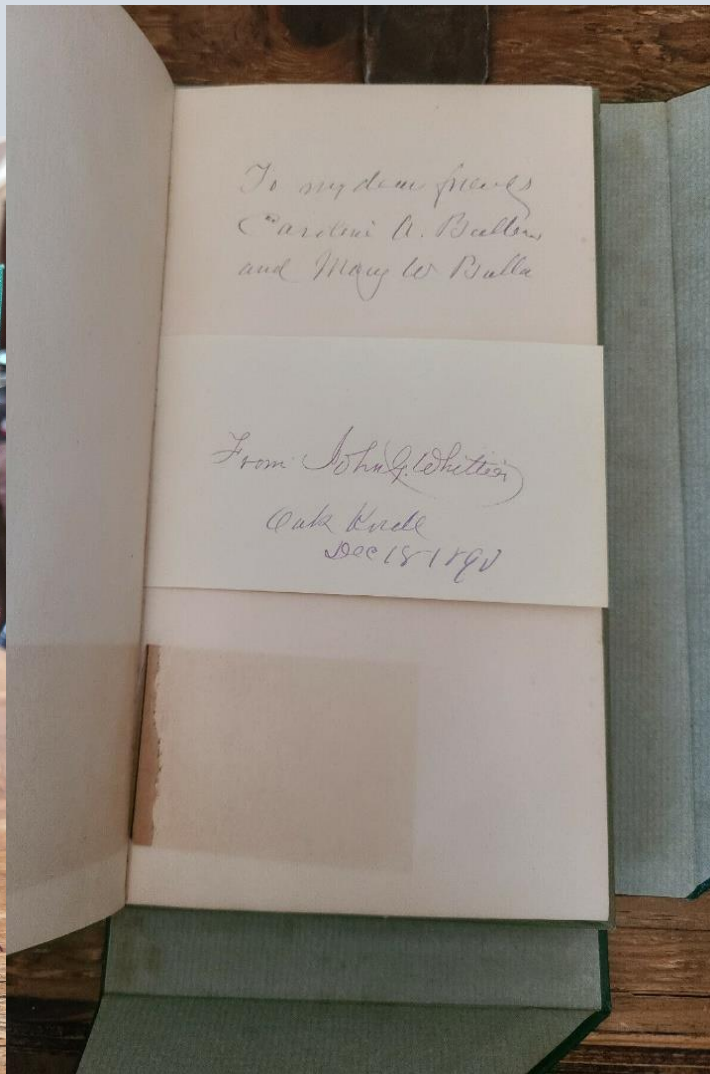 To my dear friends
Caroline A.
and Mary W
From John G. Whittier
Oak Knoll
Dec 18 1890